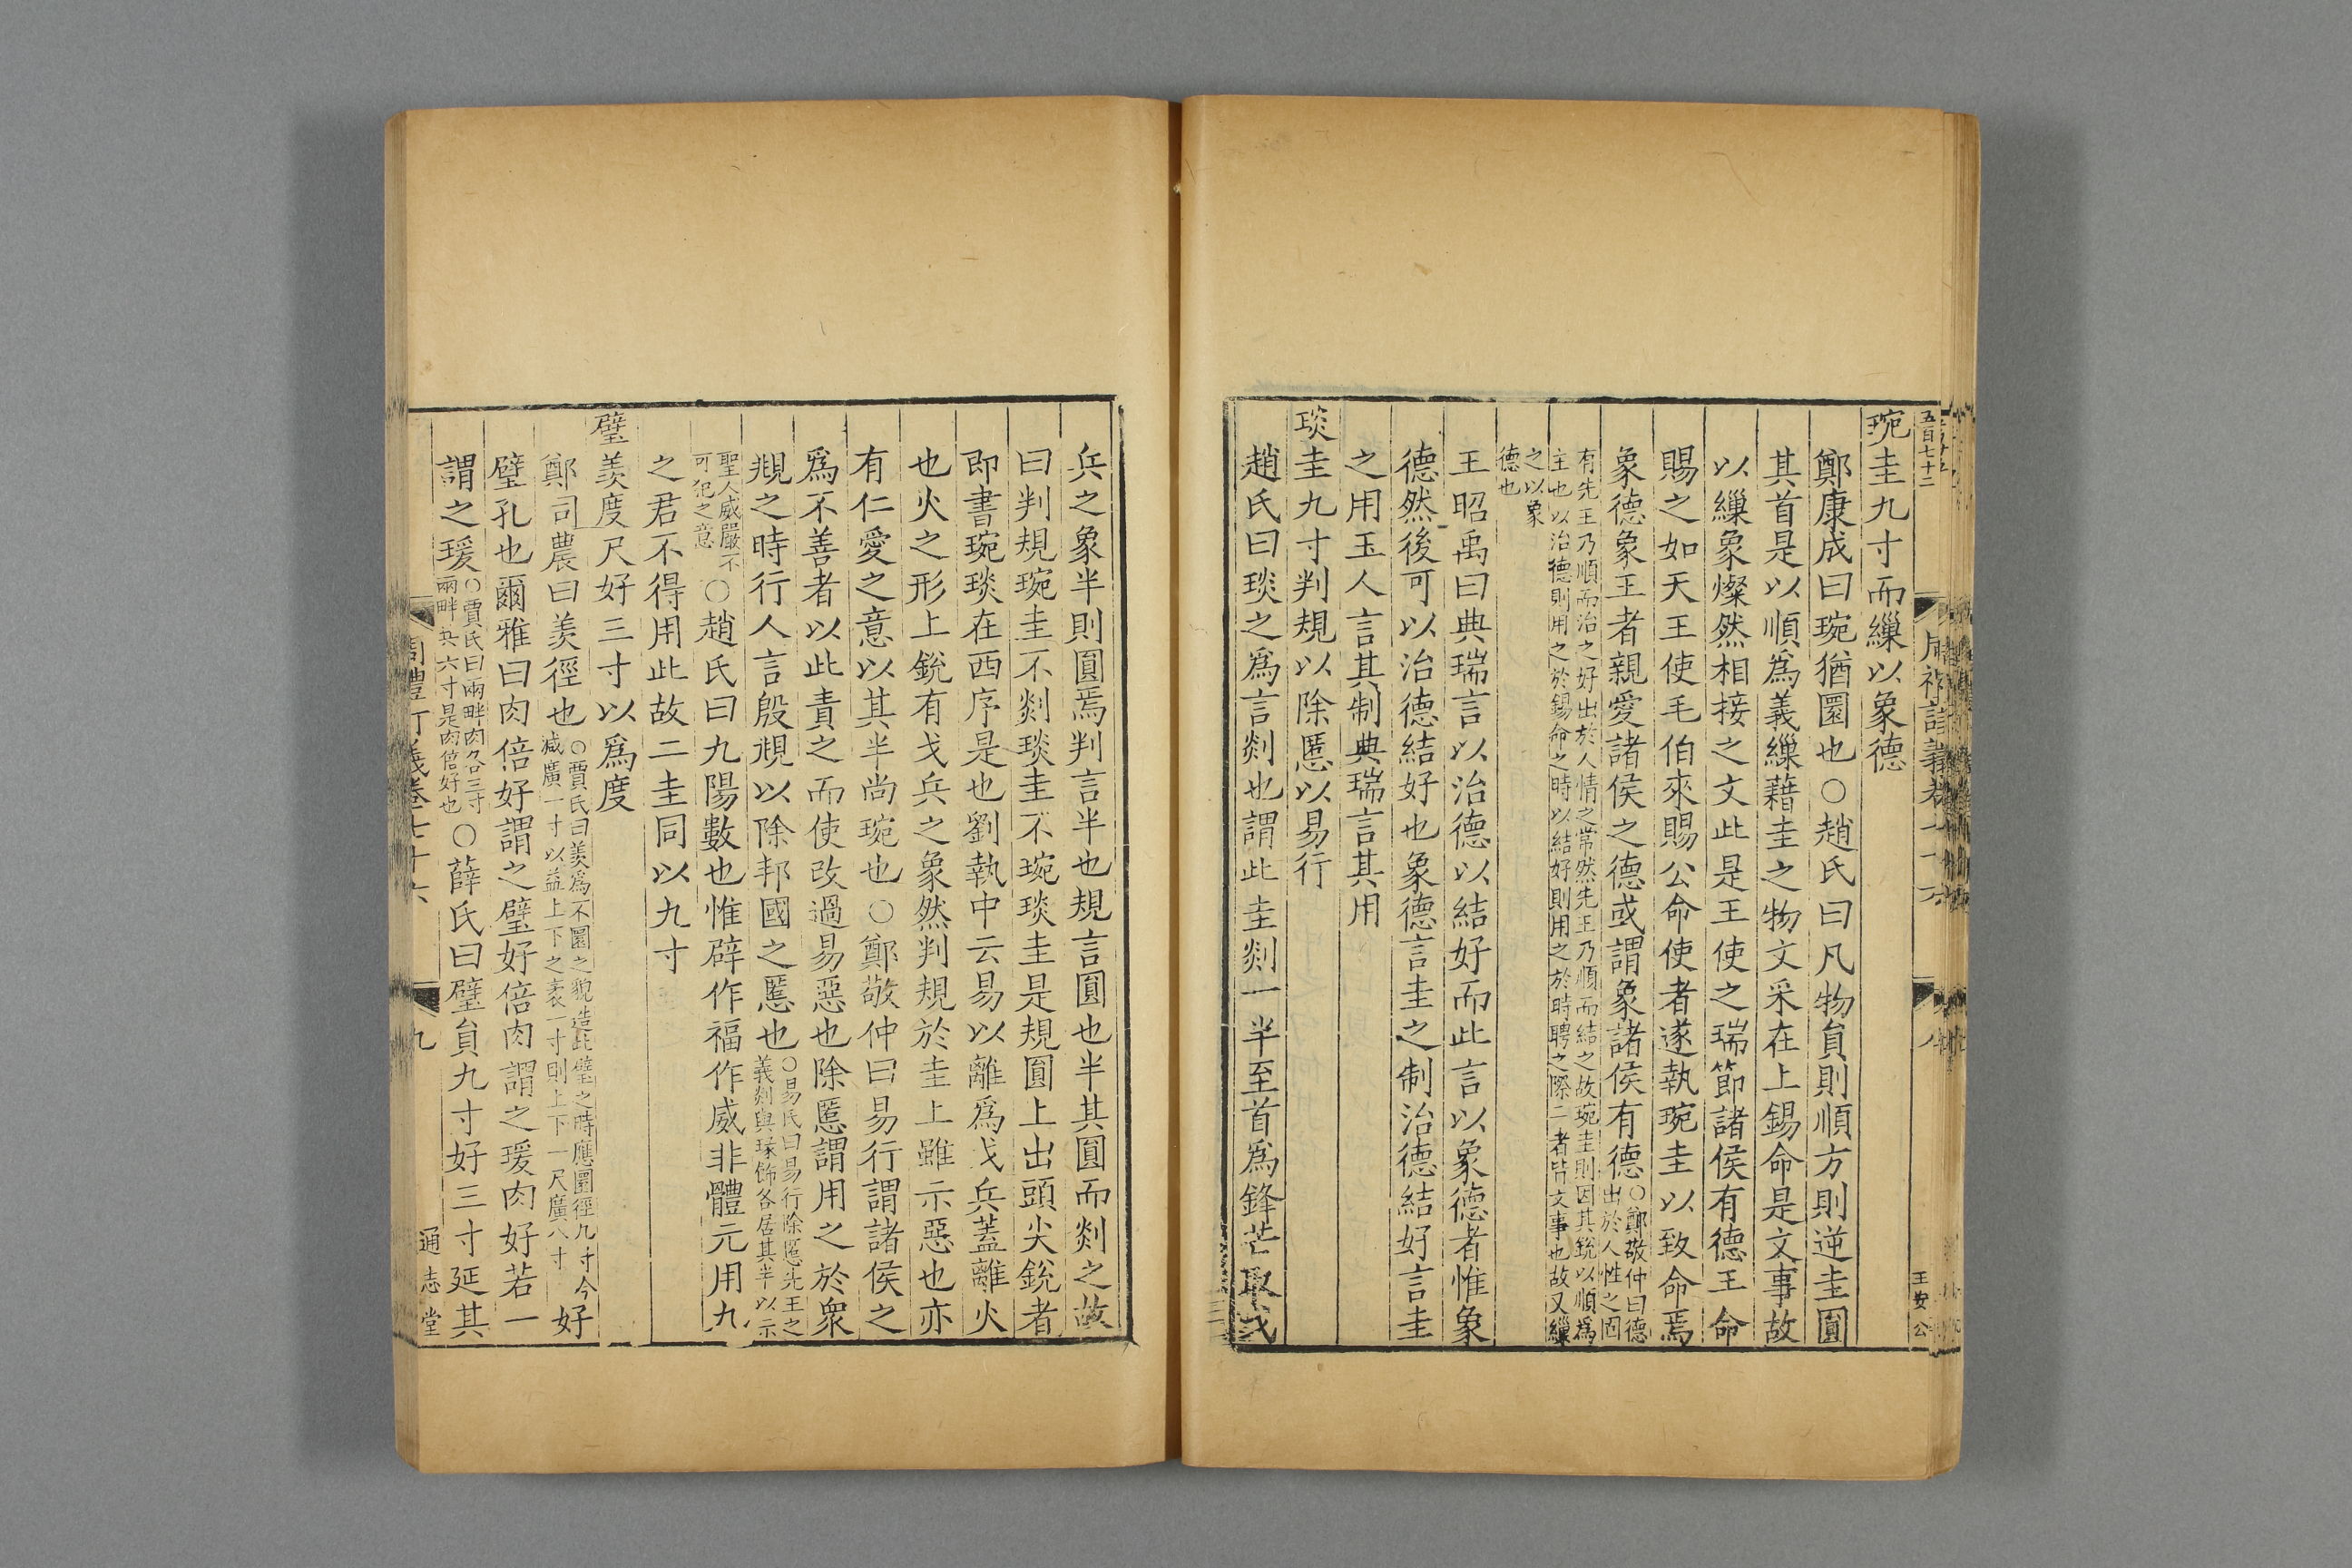 五百七十二
王安公
琬圭九寸而繅以象德
鄭康成曰琬猶圜也○趙氏曰凡物員則順方則逆圭圓
其首是以順爲義繅藉圭之物文采在上錫命是文事故
以繅象燦然相接之文此是王使之瑞節諸侯有德王命
賜之如天王使毛伯來賜公命使者遂執琬圭以致命焉
象德象王者親愛諸侯之德或謂象諸侯有德○鄭敬仲曰德
出於人性之固
有先王乃順而治之好出於人情之常然先王乃順而結之故琬圭則因其銳以順爲
主也以治德則用之於錫命之時以結好則用之於時聘之際二者皆文事也故又繅
之以象
德也
王昭禹曰典瑞言以治德以結好而此言以象德者惟象
德然後可以治德結好也象德言圭之制治德結好言圭
之用玉人言其制典瑞言其用
琰圭九寸判規以除慝以易行
趙氏曰琰之爲言剡也謂此圭剡一半至首爲鋒芒取戈
兵之象半則圓焉判言半也規言圓也半其圓而剡之故
曰判規琬圭不剡琰圭不琬琰圭是規圓上出頭尖銳者
即書琬琰在西序是也劉執中云易以離爲戈兵蓋離火
也火之形上銳有戈兵之象然判規於圭上雖示惡也亦
有仁愛之意以其半尚琬也○鄭敬仲曰易行謂諸侯之
爲不善者以此責之而使改過易惡也除慝謂用之於衆
覜之時行人言殷覜以除邦國之慝也○易氏曰易行除慝先王之
義剡與瑑飾各居其半以示
聖人威嚴不
可犯之意
○趙氏曰九陽數也惟辟作福作威非體元用九
之君不得用此故二圭同以九寸
璧羨度尺好三寸以爲度
鄭司農曰羨徑也○賈氏曰羨爲不圜之貌造此璧之時應圜徑九寸今
減廣一寸以益上下之袤一寸則上下一尺廣八寸
好
璧孔也爾雅曰肉倍好謂之璧好倍肉謂之瑗肉好若一
謂之瑗○賈氏曰兩畔肉各三寸
兩畔共六寸是肉倍好也
○薛氏曰璧員九寸好三寸延其
九
通志堂